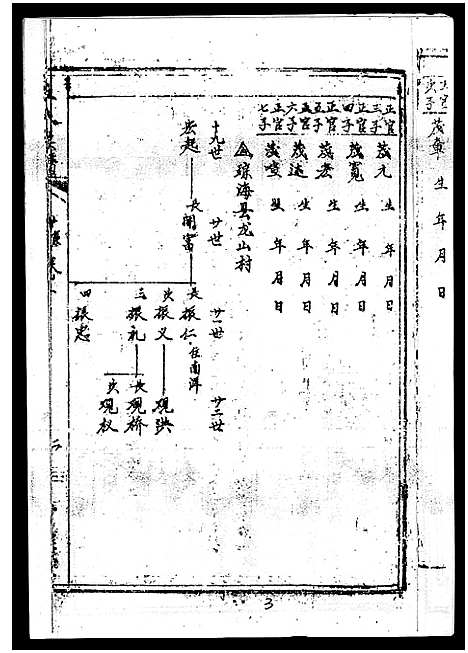 正官次子 茂章 生 年 月 日
正官三子 茂元 生 年 月 日
正官四子 茂寬 生 年 月 日
正官五子 茂宏 生 年 月 日
正官六子 茂遠 生 年 月 日
正官七子 生 年 月 日
琼海县龙山村
十九世 廿世 廿一世 廿二世
宏起 長 開富 長 振仁 住南洋
次 振义 观洪
三 振礼 長 观桥
次 观权
四 振忠
3